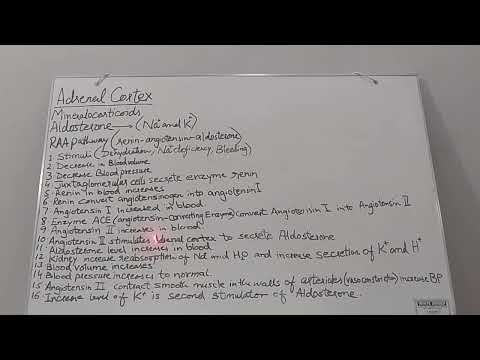 Adrenal Cortex
Mineralocorticoids
Aldosterone → (Na⁺ and K⁺)
RAA pathway (renin-angiotensin-aldosterone)
1 Stimuli (Dehydration, Na⁺ deficiency, Bleeding)
2 Decrease in Blood volume
3 Decrease Blood pressure
4 Juxtaglomerular cells secrete enzyme renin
5 Renin in blood increases
6 Renin convert angiotensinogen into angiotensin I
7 Angiotensin I increased in blood.
8 Enzyme ACE (angiotensin-converting Enzyme) convert Angiotensin I into Angiotensin II
9 Angiotensin II increases in blood
10 Angiotensin II stimulates adrenal cortex to secrete Aldosterone
11 Aldosterone level increases in blood
12 Kidney increase reabsorption of Na and H₂O and increase secretion of K⁺ and H⁺
13 Blood volume increases
14 Blood pressure increases to normal.
15 Angiotensin II contract smooth muscle in the walls of arterioles (vasoconstriction) increase BP
16. Increase level of K⁺ is second stimulator of Aldosterone.